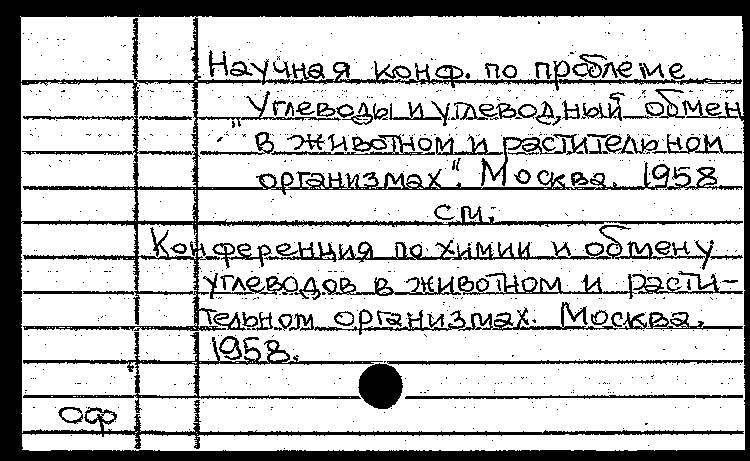 Научная конф. по проблеме
„Углеводы и углеводный обмен
в животном и растительном
организмах“. Москва. 1958
см.
Конференция по химии и обмену
углеводов в животном и расти-
тельном организмах. Москва.
1958.
оф